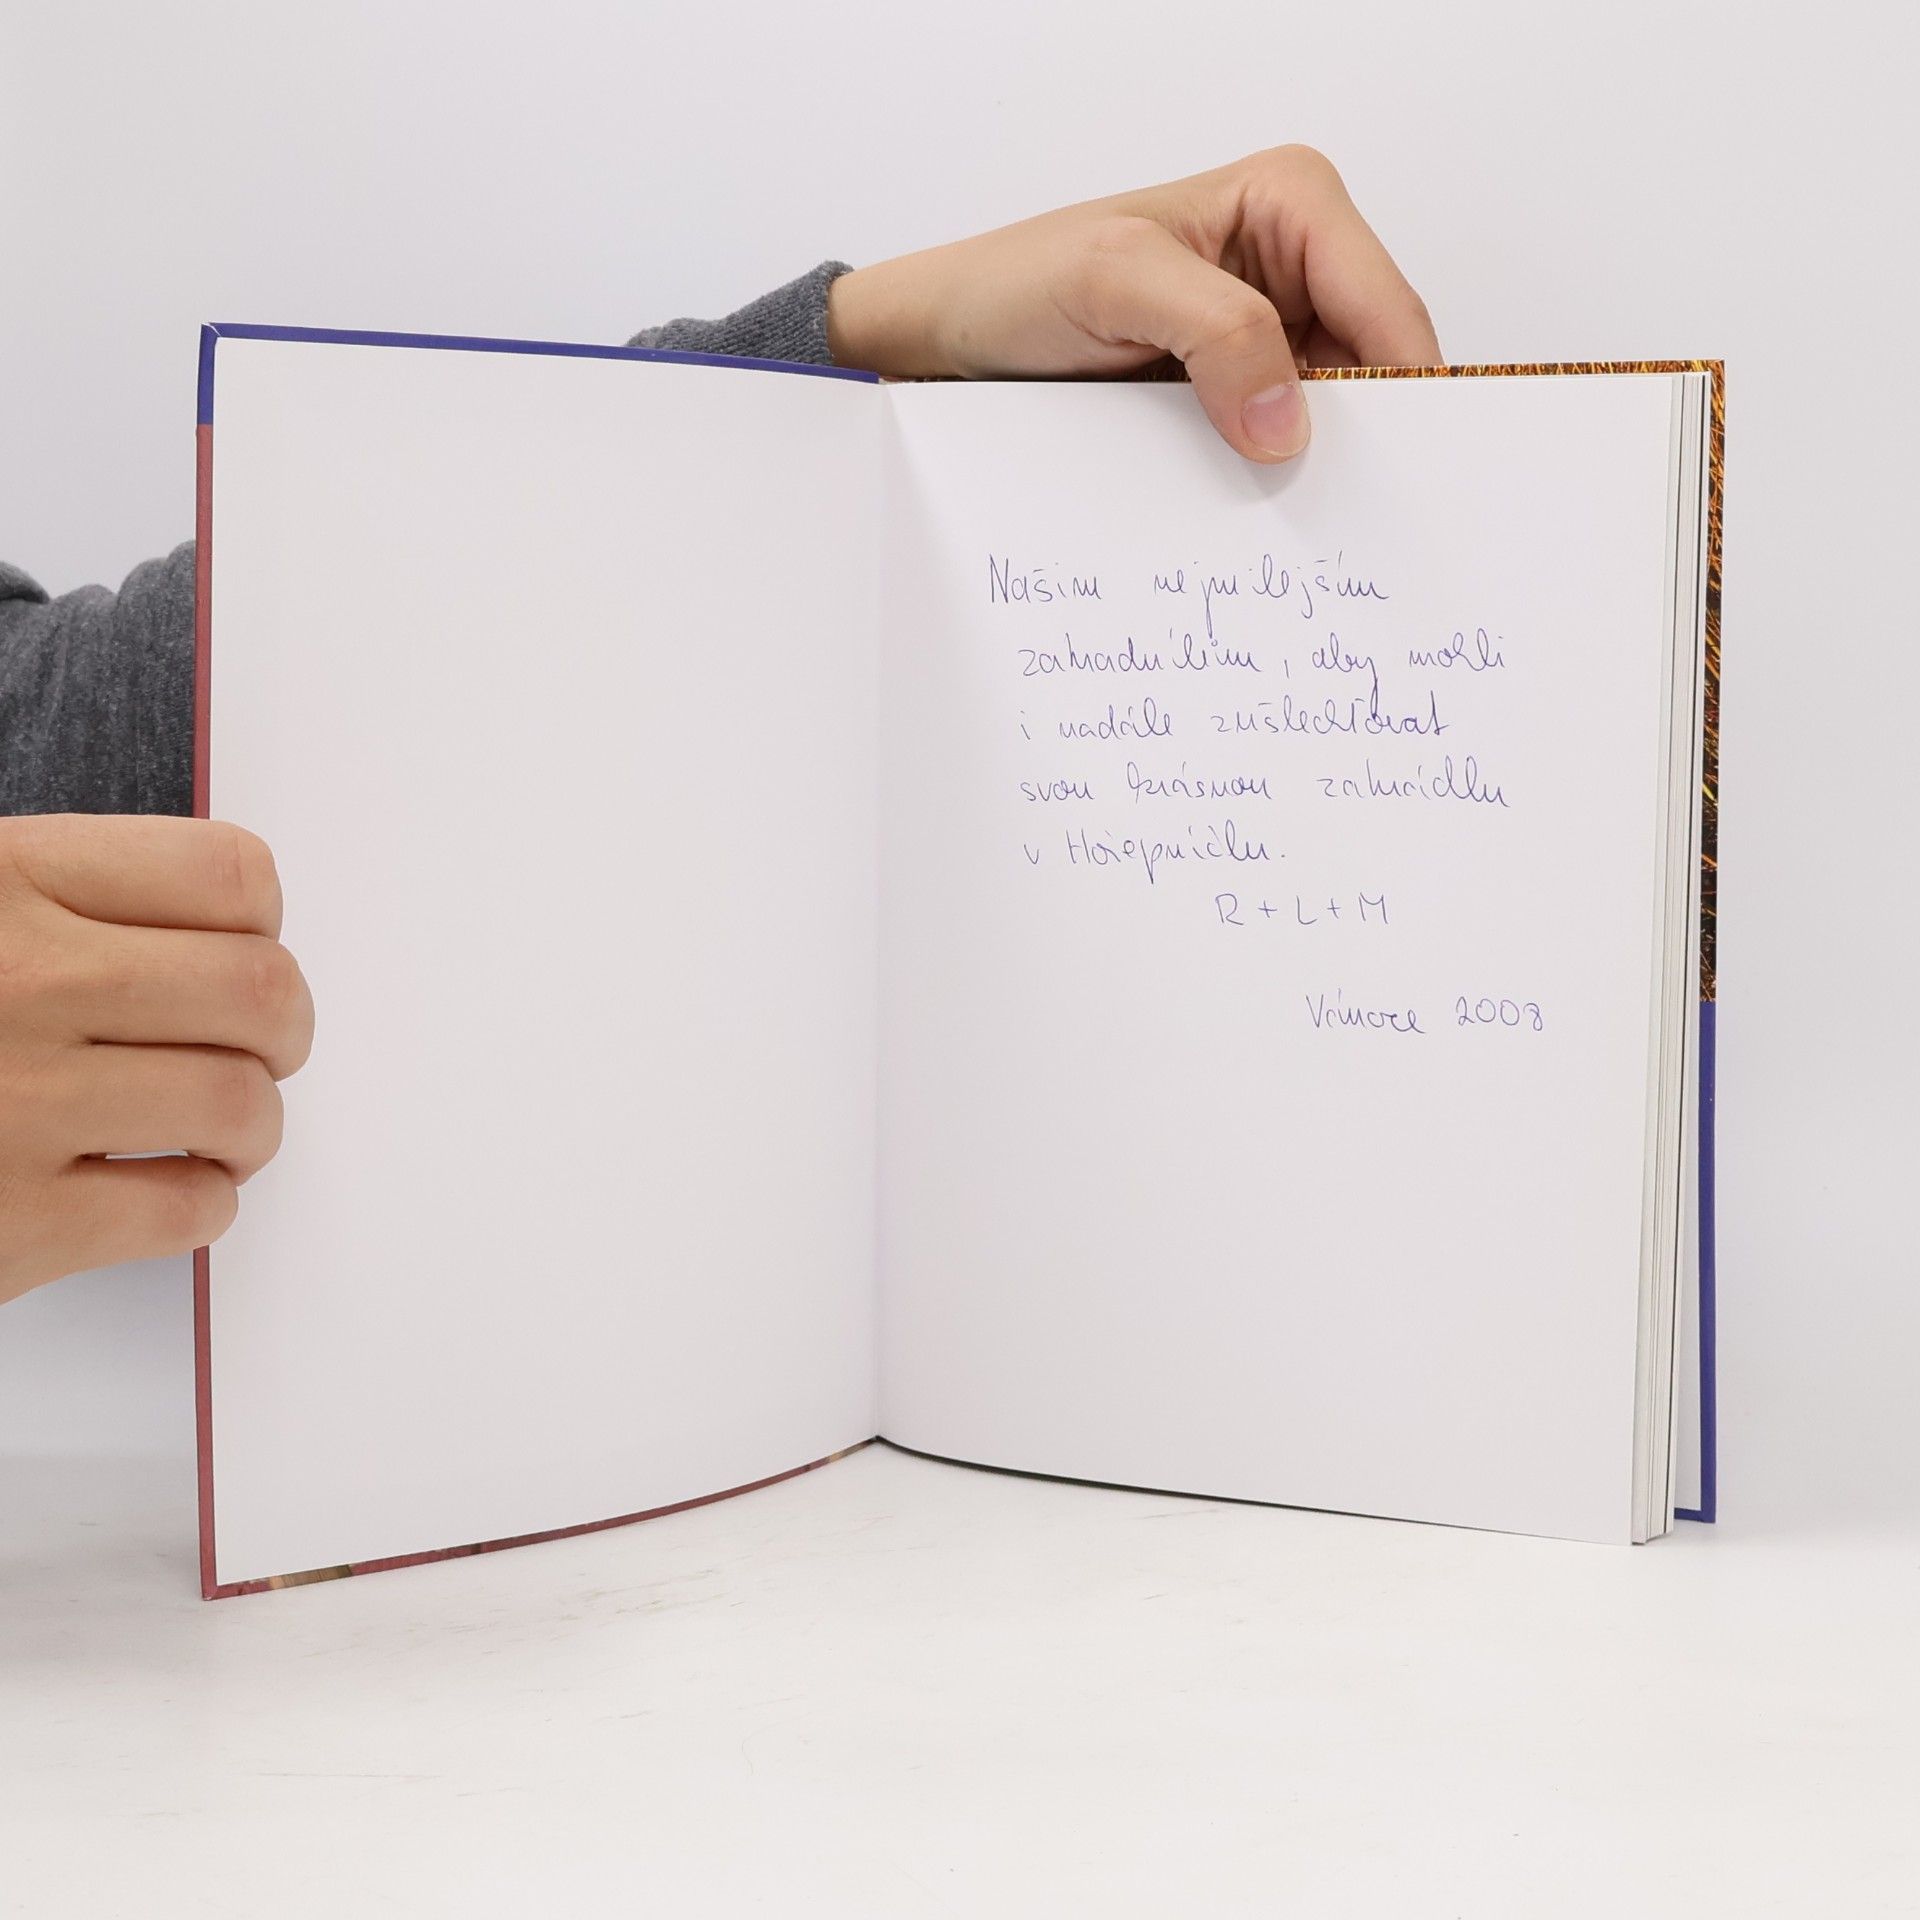 Našim nejmilejším
zahradníkům, aby mohli
i nadále zušlechťovat
svou krásnou zahrádku
v Hořepníčku.
R + L + M
Vánoce 2008